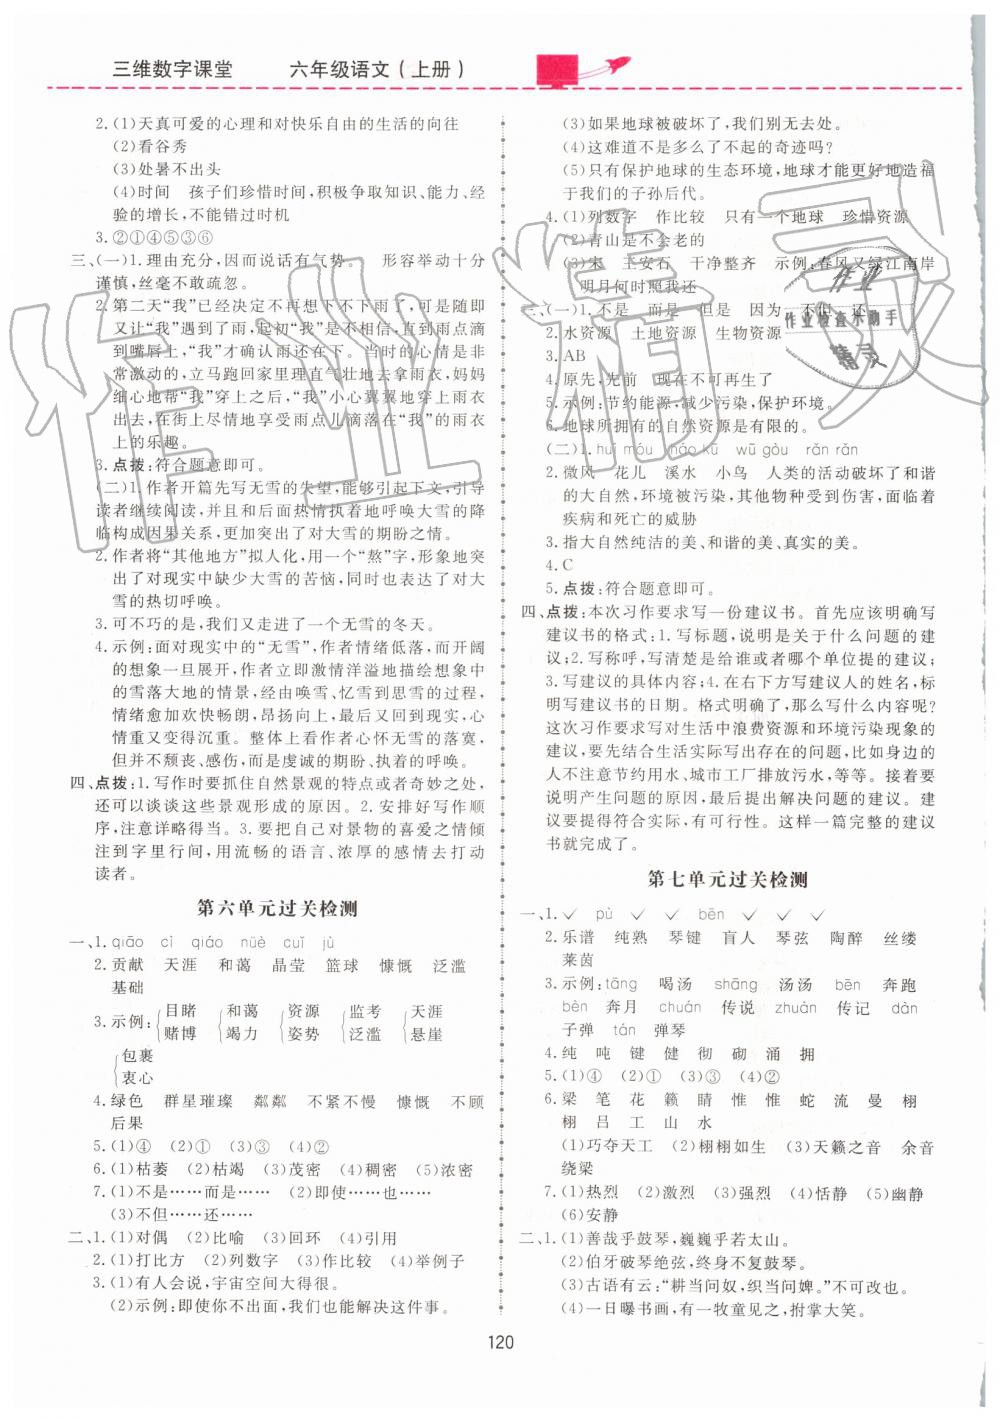 三维数字课堂 六年级语文(上册)
2.(1)天真可爱的心理和对快乐自由的生活的向往
(2)看谷秀
(3)处暑不出头
(4)时间 孩子们珍惜时间,积极争取知识、能力、经
验的增长,不能错过时机
3.②①④⑤③⑥
三、(一)1.理由充分,因而说话有气势。 形容举动十分
谨慎,丝毫不敢疏忽。
2.第二天“我”已经决定不再想下不下雨了,可是随即
又让“我”遇到了雨,起初“我”是不信的,直到雨点滴
到嘴唇上,“我”才确认雨在下。当时的心情是非
常激动的,立马跑回家里理直气壮地去穿雨衣,妈妈
细心地帮“我”穿上之后,“我”小心翼翼地穿上雨衣
出去,在街上尽情地享受雨点儿滴落在“我”的雨衣
上的乐趣。
3.点拨:符合题意即可。
(二)1.作者开篇先写无雪的失望,能够引起下文,引导
读者继续阅读,并且和后面热情执着地呼唤大雪的降
临构成因果关系,更加突出了对大雪的期盼之情。
2.作者将“其他地方”拟人化,用一个“熬”字,形象地突
出了对现实中缺少大雪的苦恼,同时也表达了对大
雪的热切呼唤。
3.可不巧的是,我们又走进了一个无雪的冬天。
4.示例:面对现实中的“无雪”,作者情绪低落,而开阔
的想象一旦展开,作者立即激情洋溢地描绘想象中
的雪落大地的情景,经由唤雪、忆雪到思雪的过程,
情绪愈加欢快畅朗,昂扬向上,最后又回到现实,心
情重又变得沉重。整体上看作者心怀无雪的落寞,
但并不颓丧、感伤,而是虔诚的期盼、执着的呼唤。
四、点拨:1.写作时要抓住自然景观的特点或者奇妙之处,
还可以谈谈这些景观形成的原因。2.安排好写作顺
序,注意详略得当。3.要把自己对景物的喜爱之情倾
注到字里行间,用流畅的语言、浓厚的感情去打动
读者。
第六单元过关检测
一、1.qiāo cì qiáo nüè cuǐ jù
2.贡献 天涯 和蔼 晶莹 篮球 慷慨 泛滥
基础
3.示例:{目睹 赌博 {和蔼 竭力 {资源 姿势 {监考 泛滥 {天涯 悬崖
{包裹 衷心
4.绿色 群星璀璨 粼粼 不紧不慢 慷慨 不顾
后果
5.(1)④ (2)① (3)③ (4)②
6.(1)枯萎 (2)枯竭 (3)茂密 (4)稠密 (5)浓密
7.(1)不是……而是…… (2)即使……也……
(3)不但……还……
二、1.(1)对偶 (2)比喻 (3)回环 (4)引用
2.(1)打比方 (2)列数字 (3)作比较 (4)举例子
3.(1)有人会说,宇宙空间大得很。
(2)示例:即使你不出面,我们也能解决这件事。
(3)如果地球被破坏了,我们别无去处。
(4)这难道不是多么了不起的奇迹吗?
(5)只有保护地球的生态环境,地球才能更好地造福
于我们的子孙后代。
4.(1)列数字 作比较 只有一个地球 珍惜资源
(2)青山是不会老的
(3)宋 王安石 干净整齐 示例:春风又绿江南岸
明月何时照我还
三、(一)1.不是 而是 但是 因为 不但 还
2.水资源 土地资源 生物资源
3.AB
4.原先,先前 现在不可再生了
5.示例:节约能源,减少污染,保护环境。
6.地球所拥有的自然资源是有限的。
(二)1.huǐ móu hào kū wū gòu rǎn rǎn
2.微风 花儿 溪水 小鸟 人类的活动破坏了和谐
的大自然,环境被污染,其他物种受到伤害,面临着
疾病和死亡的威胁
3.指大自然纯洁的美、和谐的美、真实的美。
4.C
5.点拨:符合题意即可。
四、点拨:本次习作要求写一份建议书。首先应该明确写
建议书的格式:1.写标题,说明是关于什么问题的建
议;2.写称呼,写清楚是给谁或者哪个单位提的建议;
3.写建议的具体内容;4.在右下方写建议人的姓名,标
明写建议书的日期。格式明确了,那么写什么内容呢?
这次习作要求写对生活中浪费资源和环境污染现象的
建议,要先结合生活实际写出存在的问题,比如身边的
人不注意节约用水、城市工厂排放污水,等等。接着要
说明产生问题的原因,最后提出解决问题的建议。建
议要提得符合实际,有可行性。这样一篇完整的建议
书就完成了。
第七单元过关检测
一、1.✓ pù ✓ ✓ bēn ✓ ✓ ✓
2.乐谱 纯熟 琴键 盲人 琴弦 陶醉 丝缕
莱茵
3.示例:tāng 喝汤 shāng 汤汤 bēn 奔跑
bèn 奔月 chuán 传说 zhuàn 传记 dàn
子弹 tán 弹琴
4.纯 吨 键 健 彻 砌 涌 拥
5.(1)④ (2)① (3)③ (4)②
6.梁 笔 花 籁 睛 惟 惟 蛇 流 曼 栩
栩 吕 工 山 水
(1)巧夺天工 (2)栩栩如生 (3)天籁之音 余音
绕梁
7.(1)热烈 (2)激烈 (3)强烈 (4)恬静 (5)幽静
(6)安静
二、1.(1)善哉乎鼓琴,巍巍乎若太山。
(2)伯牙破琴绝弦,终身不复鼓琴。
(3)古语有云:“耕当问奴,织当问婢。”不可改也。
(4)一日曝书画,有一牧童见之,拊掌大笑。
120
作业精灵
作业
作业检查小助手
精灵